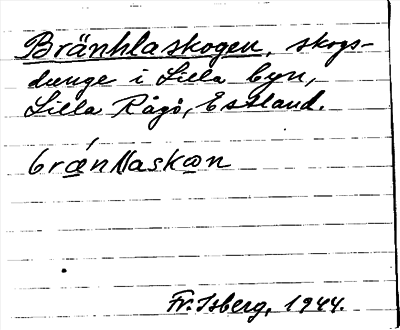 Bränhlaskogen, skogs-
dunge i Lilla byn,
Lilla Rågö, Estland.
brǽnllaskæn
Fr. Isberg, 1944.